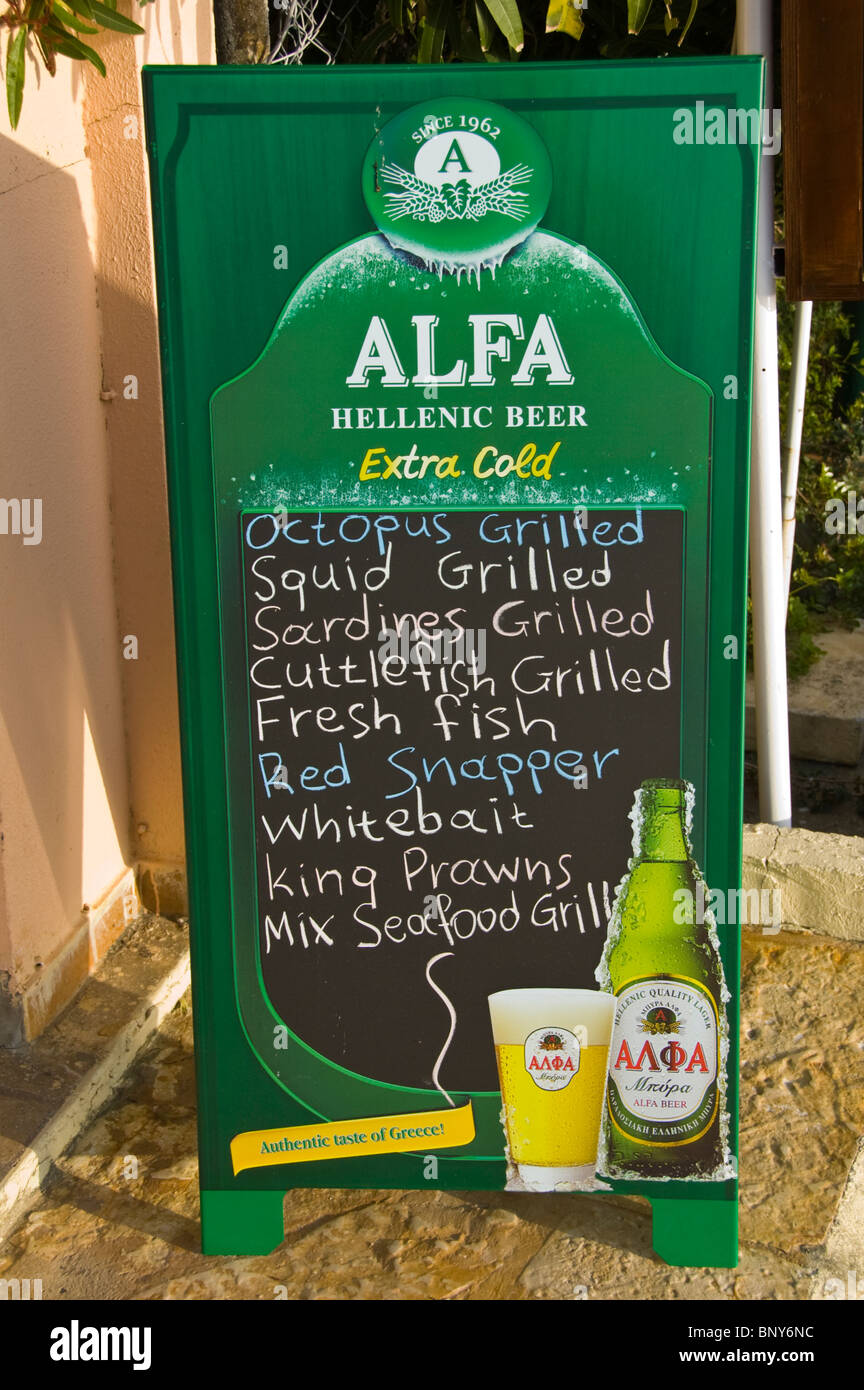 SINCE 1962
A
ALFA
HELLENIC BEER
Extra Cold
Octopus Grilled
Squid Grilled
Sardines Grilled
Cuttlefish Grilled
Fresh fish
Red Snapper
Whitebait
King Prawns
Mix Seafood Grill
HELLENIC QUALITY LAGER
ΜΠΥΡΑ ΑΛΦΑ
ΑΛΦΑ
Μπύρα
ALFA BEER
ΠΑΡΑΔΟΣΙΑΚΗ ΕΛΛΗΝΙΚΗ ΜΠΥΡΑ
ΑΛΦΑ
Authentic taste of Greece!
alamy
Image ID: BNY6NC
www.alamy.com